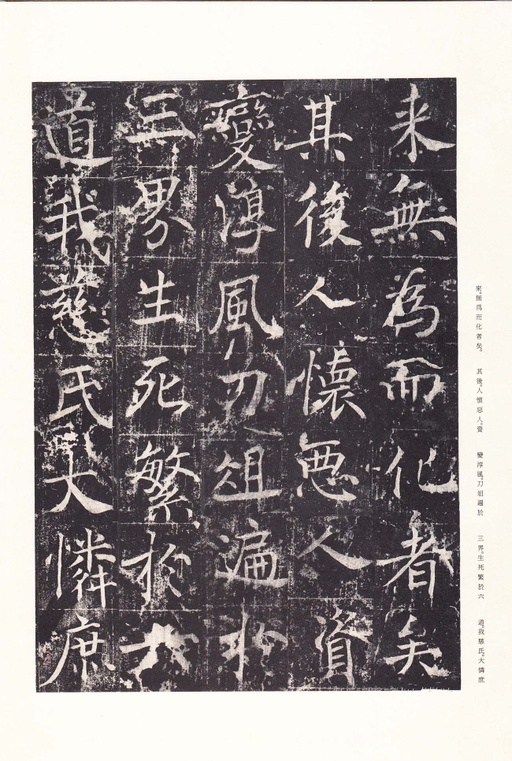 来無為而化者矣
其後人懐惡人資
變淳風刀俎遍於
三界生死繁於六
道我慈氏大憐庶
來，無爲而化者矣。　其後，人懷惡，人資　變淳風，刀俎遍於　三界，生死繁於六　道，我慈氏，大憐庶